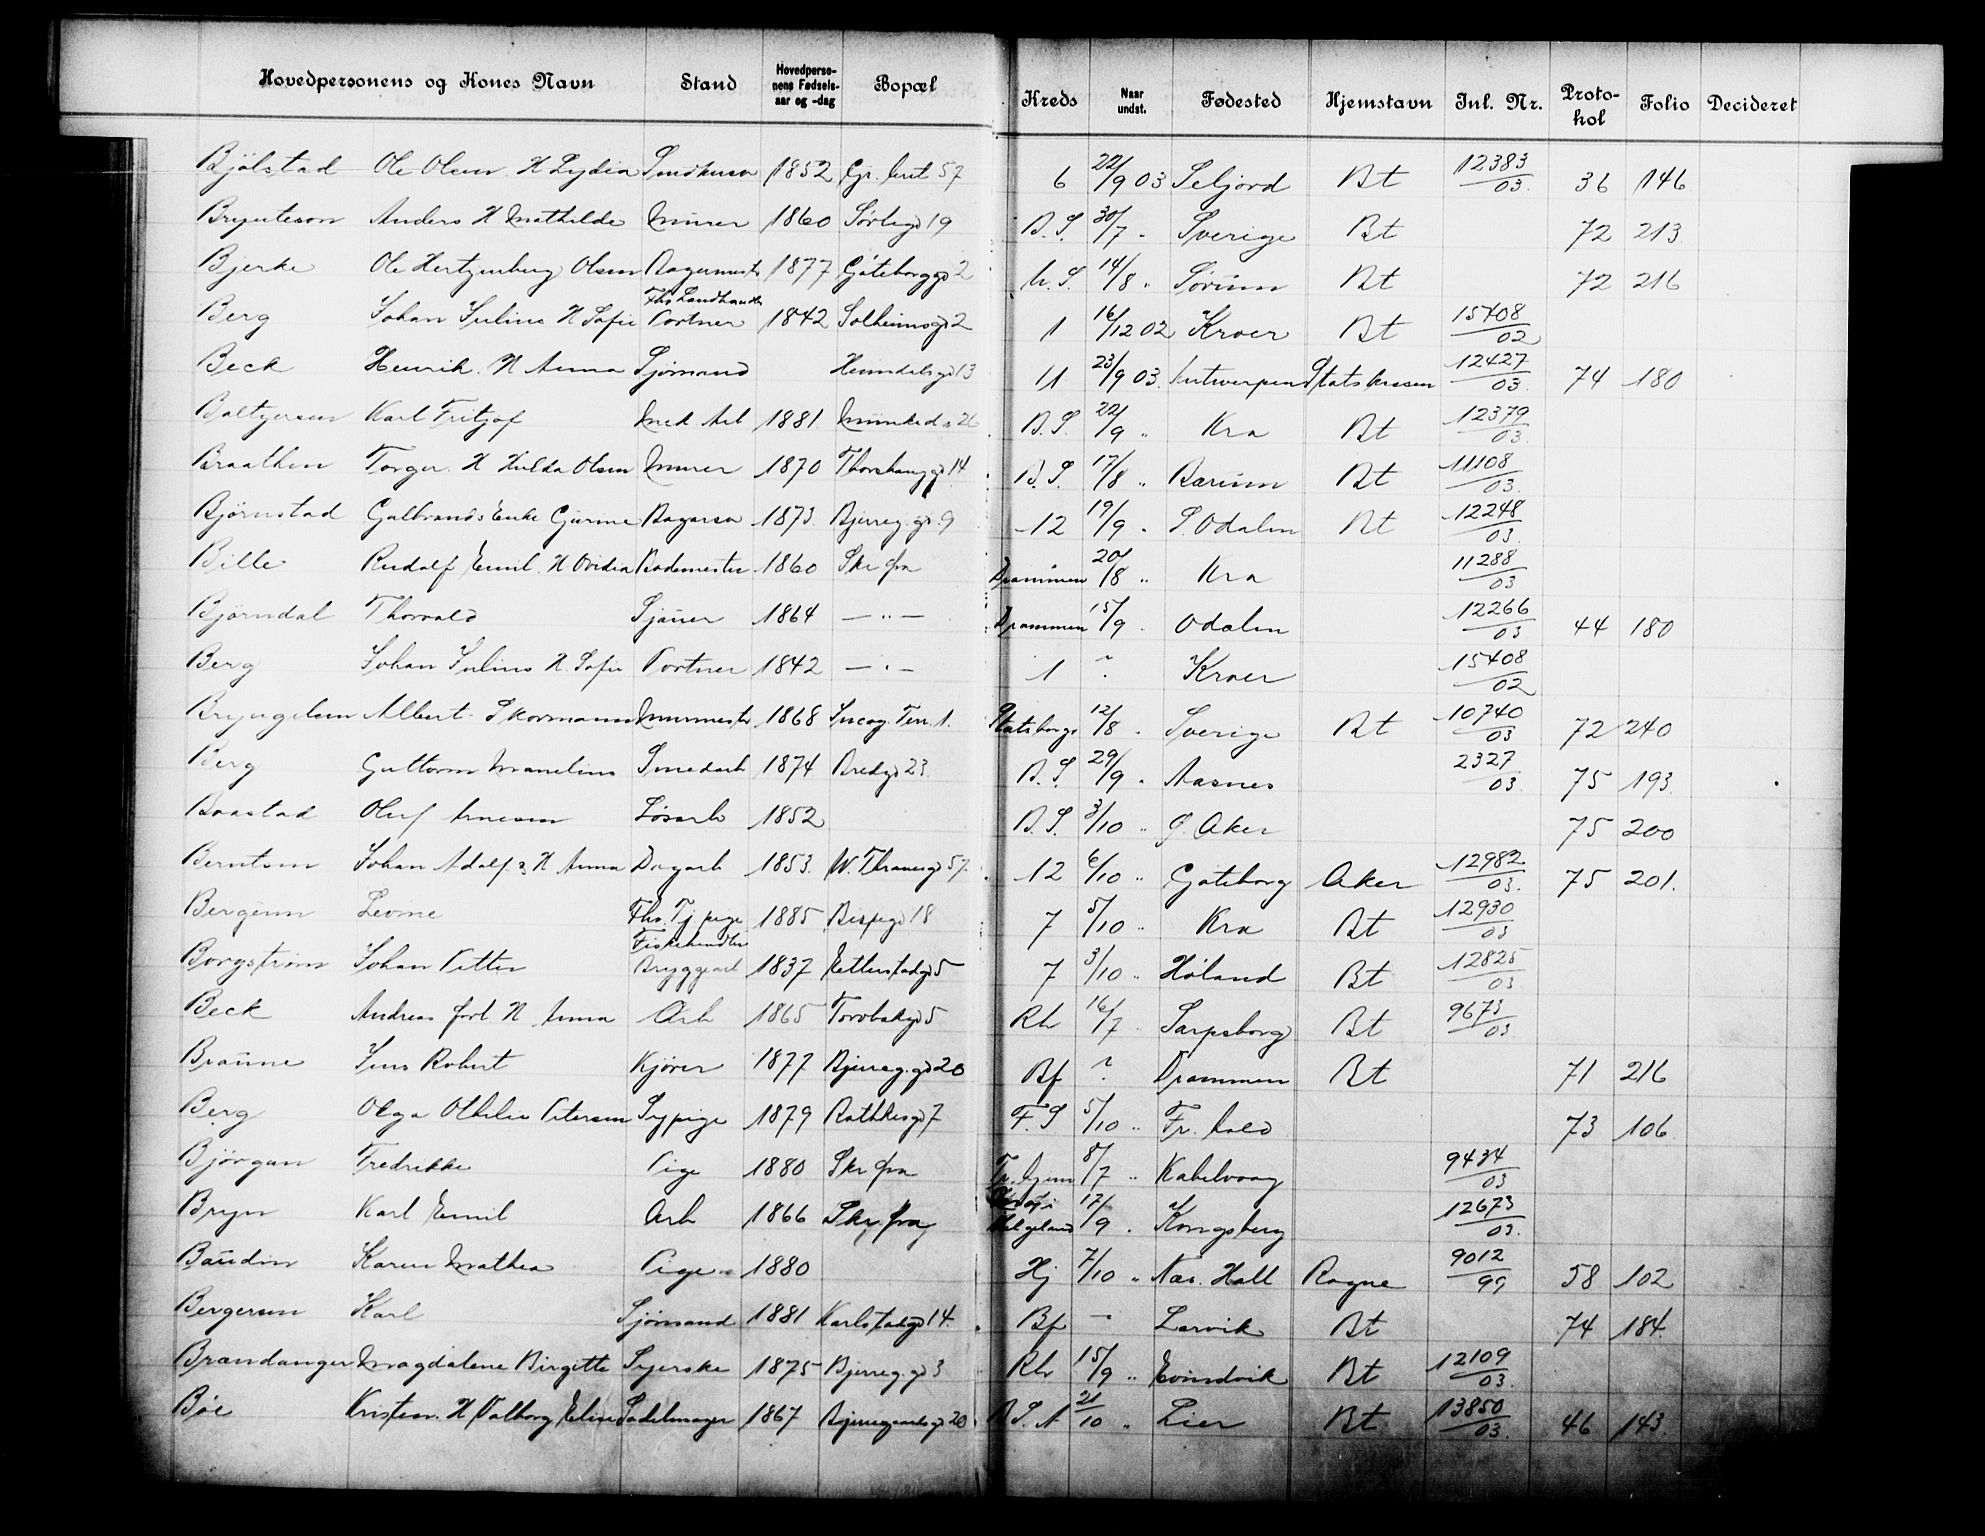 Hovedpersonens og Kones Navn Stand Hovedperso-nens Fødsels-aar og -dag Bopæl Kreds Naar undst. Fødested Hjemstavn Jnl. Nr. Proto-kol Folio Decideret
Bjølstad Ole Olsen H Lydia 1852 57 6 22/9 03 Seljord Bt 12383/03. 36 146
Brynteson Anders H Mathilde Murer 1860 Sörligd 19 B.S. 30/7 " Sverige Bt 72 213
Bjerke Ole Hertzenberg Olsen Bagermestr 1877 Göteborggd 2 14/8 " Sörum Bt 72 216
Berg Johan Julius H Sofie Fhv Landhandler Portner 1842 Solheimsgd 2 1 16/12 02 Kroer Bt 15408/02
Beck Henrik. H Anna Sjömand Heimdalsgd 13 11 23/9 03. Antwerpen Statskassen 12427/03. 74 180
Baltzersen Karl Fritjof Mek. Arb 1881 Munked 26 B.S. 22/9 " Kra Bt 12379/03.
Braathen Torger. H Hulda Olsen Murer 1870 Thorshauggd 14 B.S. 17/8 " Bærum Bt 11108/03.
Björnstad Gulbrands Enke Gurine Bagersa 1873. Bjerreg.gd. 9 12 19/9 " S. Odalen Bt 12248/03.
Bille Rudolf Emil. H Ovidia Bademester 1860 Skr fra Drammen 20/8 " Kra 11288/03
Björndal Thorvald Sjauer 1864 — " — Drammen 15/9 " Odalen 12266/03 44 180
Berg Johan Julius H. Sofie Portner 1842 — " — 1 Kroer 15408/02
Bryngelsen Albert Skarmann Murmestr 1868 Incog. Ter. 1. Statsborgr 12/8 " Sverige Bt 10740/03 72 240
Berg Guttorm Manelius Smedarb 1874 Bredgd 23. B.S. 29/9 " Aasnes 2327/03. 75 193.
Braastad Oluf Arnesen Løsarb 1852 B.S. 3/10 " Ö. Aker 75 200
Berntsen Johan Adolf H Anna Dagarb 1853. W. Thranesgd 57. 12 6/10 " Göteborg Aker 12982/03. 75 201.
Bergerm Leone Fhv. Tj pige 1885 Bispegd 18 7 5/10 " Kra Bt 12930/03
Borgström Johan Petter Fiskehandler Bryggearb 1837 Etterstadgd 5 7 3/10 " Höland Bt 12825/03
Beck Andreas H Anna Arb 1865 Torvbakgd 5 Rh 16/7 " Sarpsborg Bt 9673/03
Braune Jens Robert Kjører 1877 Bjerreg.gd 20 Bf Drammen Bt 71 216
Berg Olga Othilie Petersen Sypige 1879 Rathkesgd 7 F.S 5/10 " Fr. hald 73 106
Björgan Fredrikke Pige 1880 Skr fra Tr.hjem 8/7 " Kabelvaag 9434/03
Bryn Karl Emil Arb 1866 Skr. fra Helgeland 17/9 " Kongsberg 12673/03.
Baudin Karen Mathea Pige 1880 Hj 7/10 " Næs. Hall Ragne 9012/99 58 102
Bergersen Karl Sjömand 1881 Karlstadgd 14. Bf — Larvik Bt 74 184
Brandanger Magdalene Birgitte Syerske 1875 Bjerreg.gd 3 Rh 15/9 " Evindvik Bt 12109/03.
Böe Kristen. H Valborg Elise Sadelmager 1867 Bjerregaardsgd 20 B.S. A 21/10 " Lier Bt 13850/03. 46 143